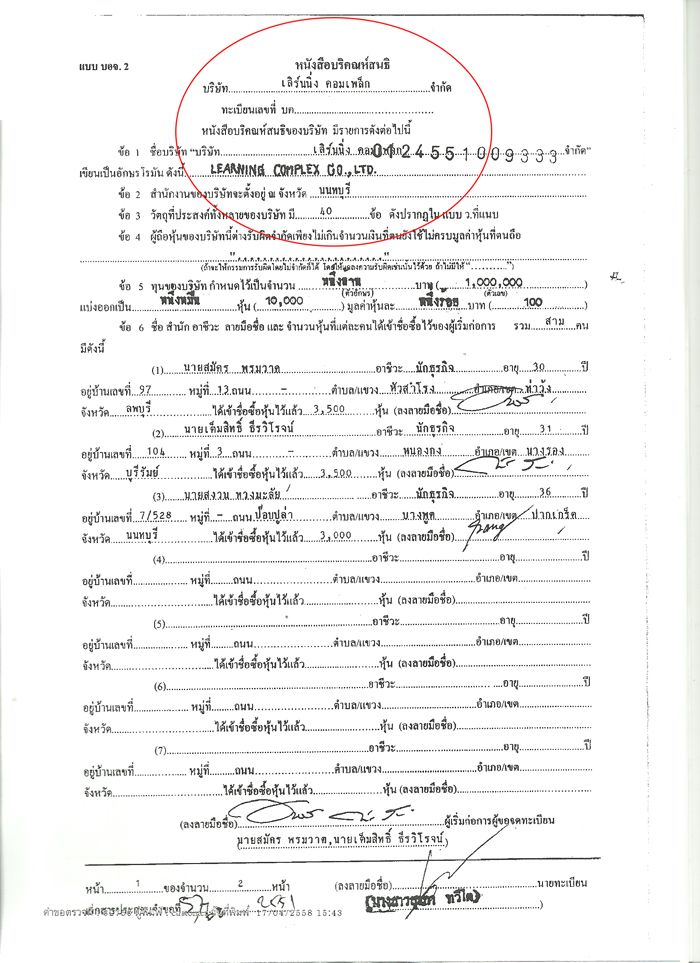 แบบ บอจ. 2
หนังสือบริคณห์สนธิ
บริษัท เลิร์นนิ่ง คอมเพล็ก จำกัด
ทะเบียนเลขที่ บค
หนังสือบริคณห์สนธิของบริษัท มีรายการดังต่อไปนี้
ข้อ 1 ชื่อบริษัท "บริษัท เลิร์นนิ่ง คอมเพล็ก 0124551009333 จำกัด"
เขียนเป็นอักษรโรมัน ดังนี้ LEARNING COMPLEX CO.,LTD.
ข้อ 2 สำนักงานของบริษัทจะตั้งอยู่ ณ จังหวัด นนทบุรี
ข้อ 3 วัตถุที่ประสงค์ทั้งหลายของบริษัท มี 40 ข้อ ดังปรากฏในแบบ ว.ที่แนบ
ข้อ 4 ผู้ถือหุ้นของบริษัทนี้ต่างรับผิดจำกัดเพียงไม่เกินจำนวนเงินที่ตนยังใช้ไม่ครบมูลค่าหุ้นที่ตนถือ
(ถ้าจะให้กรรมการรับผิดโดยไม่จำกัดก็ได้ โดยให้แสดงความรับผิดเช่นนั้นไว้ด้วย ถ้าไม่มีให้ "..........")
ข้อ 5 ทุนของบริษัท กำหนดไว้เป็นจำนวน หนึ่งล้าน บาท ( 1,000,000 )
(ตัวอักษร) (ตัวเลข)
แบ่งออกเป็น หนึ่งหมื่น หุ้น ( 10,000 ) มูลค่าหุ้นละ หนึ่งร้อย บาท ( 100 )
ข้อ 6 ชื่อ สำนัก อาชีวะ ลายมือชื่อ และ จำนวนหุ้นที่แต่ละคนได้เข้าชื่อซื้อไว้ของผู้เริ่มก่อการ รวม สาม คน
มีดังนี้
(1) นายสมัคร พรมวาด อาชีวะ นักธุรกิจ อายุ 30 ปี
อยู่บ้านเลขที่ 97 หมู่ที่ 13 ถนน - ตำบล/แขวง หัวสำโรง อำเภอ/เขต ท่าวุ้ง
จังหวัด ลพบุรี ได้เข้าชื่อซื้อหุ้นไว้แล้ว 3,500 หุ้น (ลงลายมือชื่อ)
(2) นายเต็มสิทธิ์ ธีรวิโรจน์ อาชีวะ นักธุรกิจ อายุ 31 ปี
อยู่บ้านเลขที่ 104 หมู่ที่ 3 ถนน - ตำบล/แขวง หนองกง อำเภอ/เขต นางรอง
จังหวัด บุรีรัมย์ ได้เข้าชื่อซื้อหุ้นไว้แล้ว 3,500 หุ้น (ลงลายมือชื่อ)
(3) นายสงวน หวงมะลัย อาชีวะ นักธุรกิจ อายุ 36 ปี
อยู่บ้านเลขที่ 7/528 หมู่ที่ - ถนน ป๊อบปูล่า ตำบล/แขวง บางพูด อำเภอ/เขต ปากเกร็ด
จังหวัด นนทบุรี ได้เข้าชื่อซื้อหุ้นไว้แล้ว 3,000 หุ้น (ลงลายมือชื่อ)
(4) อาชีวะ อายุ ปี
อยู่บ้านเลขที่ หมู่ที่ ถนน ตำบล/แขวง อำเภอ/เขต
จังหวัด ได้เข้าชื่อซื้อหุ้นไว้แล้ว หุ้น (ลงลายมือชื่อ)
(5) อาชีวะ อายุ ปี
อยู่บ้านเลขที่ หมู่ที่ ถนน ตำบล/แขวง อำเภอ/เขต
จังหวัด ได้เข้าชื่อซื้อหุ้นไว้แล้ว หุ้น (ลงลายมือชื่อ)
(6) อาชีวะ อายุ ปี
อยู่บ้านเลขที่ หมู่ที่ ถนน ตำบล/แขวง อำเภอ/เขต
จังหวัด ได้เข้าชื่อซื้อหุ้นไว้แล้ว หุ้น (ลงลายมือชื่อ)
(7) อาชีวะ อายุ ปี
อยู่บ้านเลขที่ หมู่ที่ ถนน ตำบล/แขวง อำเภอ/เขต
จังหวัด ได้เข้าชื่อซื้อหุ้นไว้แล้ว หุ้น (ลงลายมือชื่อ)
(ลงลายมือชื่อ) ผู้เริ่มก่อการผู้ขอจดทะเบียน
(นายสมัคร พรมวาด,นายเต็มสิทธิ์ ธีรวิโรจน์)
หน้า 1 ของจำนวน 2 หน้า (ลงลายมือชื่อ) นายทะเบียน
17/04/2558 15:43